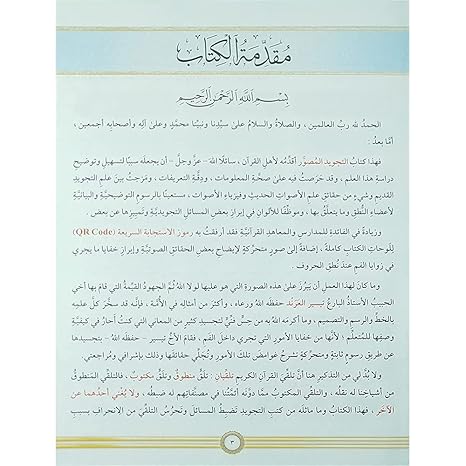 مُقَدِّمَةُ الْكِتَابِ
بِسْمِ اللَّهِ الرَّحْمَنِ الرَّحِيمِ
الحمدُ لله ربِّ العالمين، والصلاةُ والسلامُ على سيِّدنا ونبيِّنا محمَّدٍ وعلى آلِهِ وأصحابِهِ أجمعين،
أمَّا بعدُ:
فهذا كتابُ التجويد المصوَّر أقدِّمه لأهل القرآن، سائلًا الله – عزَّ وجلَّ – أن يجعلَه سببًا لتسهيلِ وتوضيحِ
دراسةِ هذا العلم، وقد حَرَصتُ فيه على صحَّة المعلومات، ودِقَّة التعريفات، ومَزجتُ بين علم التجويد
القديم وشيءٍ من حقائق علم الأصوات الحديث وفيزياء الأصوات، مستعينًا بالرسوم التوضيحيَّة والبيانيَّة
لأعضاء النُّطق وما يتعلَّق بها، وموظِّفًا للألوان في إبراز بعض المسائل التجويديَّة وتمييزها عن بعض.
وزيادةً في الفائدة للمدارس والمعاهد القرآنيَّة فقد أرفقتُ به رموز الاستجابة السريعة (QR Code)
لِلَوحات الكتاب كاملة، إضافةً إلى صورٍ متحرِّكةٍ لإيضاح بعض الحقائق الصوتيَّة وإبراز خفايا ما يجري
في زوايا الفم عندَ نُطق الحروف.
وما كان لهذا العمل أن يَبرُزَ على هذه الصورة التي هو عليها لولا اللهُ ثمَّ الجهودُ القيِّمةُ التي قام بها أخي
الحبيبُ الأستاذُ البارعُ تيسير العَرْنَد حفظه الله ورعاه، وأكثرَ من أمثاله في الأمَّة، فإنَّه قد سخَّر كلَّ علمِه
بالخطِّ والرسم والتصميم، وما أكرمه الله به من حِسٍّ فنِّيٍّ لتجسيد كثيرٍ من المعاني التي كنتُ أحارُ في كيفيَّة
وصفِها للمتعلِّم؛ لأنَّها من خفايا الأمور التي تجري داخل الفم، فقام الأخُ تيسير – حفظه الله – بتجسيدها
عن طريق رسومٍ ثابتةٍ ومتحرِّكةٍ تشرحُ غوامضَ تلك الأمور وتُجلِّي حقائقَها وذلك بإشرافي ومُراجعتي.
ولا بُدَّ لي من التذكير هنا أنَّ تلقِّيَ القرآن الكريم تلقِّيان: تلقٍّ منطوقٌ وتلقٍّ مكتوبٌ، فالتلقِّي المنطوقُ
من أشياخنا له نقلُه، والتلقِّي المكتوبُ ممَّا دوَّنه أئمَّتُنا في مصنَّفاتِهم له ضبطُه، ولا يُغني أحدُهما عن
الآخر، فهذا الكتابُ وما ماثلَه من كتب التجويد تَضبِطُ المسائل وتَحرُسُ التلقِّيَ من الانحراف بسبب
٣